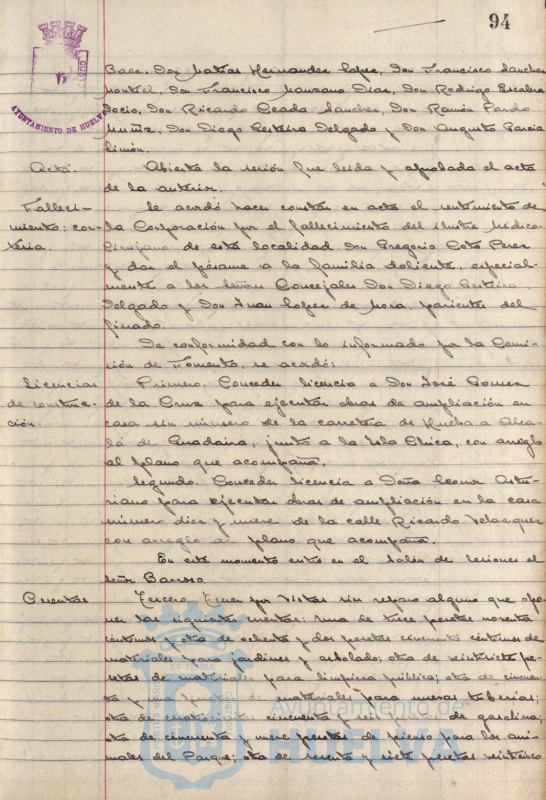 94
AYUNTAMIENTO DE HUELVA
Baca, Don Matias Hernandez Lopez, Don Francisco Sanchez
Montiel, Don Francisco Manzano Diaz, Don Rodrigo Escalera
Socio, Don Ricardo Ceada Sanchez, Don Ramón Pardo
Muñiz, Don Diego Esteira Delgado y Don Augusto Garcia
Limón.
Acta. Abierta la sesión fue leida y aprobada el acta
de la anterior.
Falleci- Se acordó hacer constar en acta el sentimiento de
miento: cor- la Corporación por el fallecimiento del ilustre Médico-
tesia. Cirujano de esta localidad Don Gregorio Coto Perez
y dar el pésame a la familia doliente, especial-
mente a los señores Concejales Don Diego Esteira
Delgado y Don Juan Lopez de Mora, parientes del
finado.
De conformidad con lo informado por la Comi-
sión de Fomento, se acordó:
Licencias Primero. Conceder licencia a Don José Gomez
de construc- de la Cruz para ejecutar obras de ampliación en
ción. casa sin número de la carretera de Huelva a Alca-
lá de Guadaira, junto a la Isla Chica, con arreglo
al plano que acompaña.
Segundo. Conceder licencia a Doña Leonor Astu-
riano para ejecutar obras de ampliación en la casa
número diez y nueve de la calle Ricardo Velazquez
con arreglo al plano que acompaña.
En este momento entra en el Salón de Sesiones el
señor Barroso.
Cuentas Tercero. Tener por vistas sin reparo alguno que opo-
ner las siguientes cuentas: Una de trece pesetas noventa
céntimos y otra de ochenta y dos pesetas cincuenta céntimos de
materiales para jardines y arbolado; otra de veintisiete pe-
setas de materiales para limpieza pública; otra de cincuen-
ta y de materiales para nuevas tuberias;
otra de cuatrocientas cincuenta y seis pesetas de gasolina;
otra de cincuenta y nueve pesetas de pienso para los ani-
males del Parque; otra de sesenta y siete pesetas veinticinco
Ayuntamiento de
HUELVA